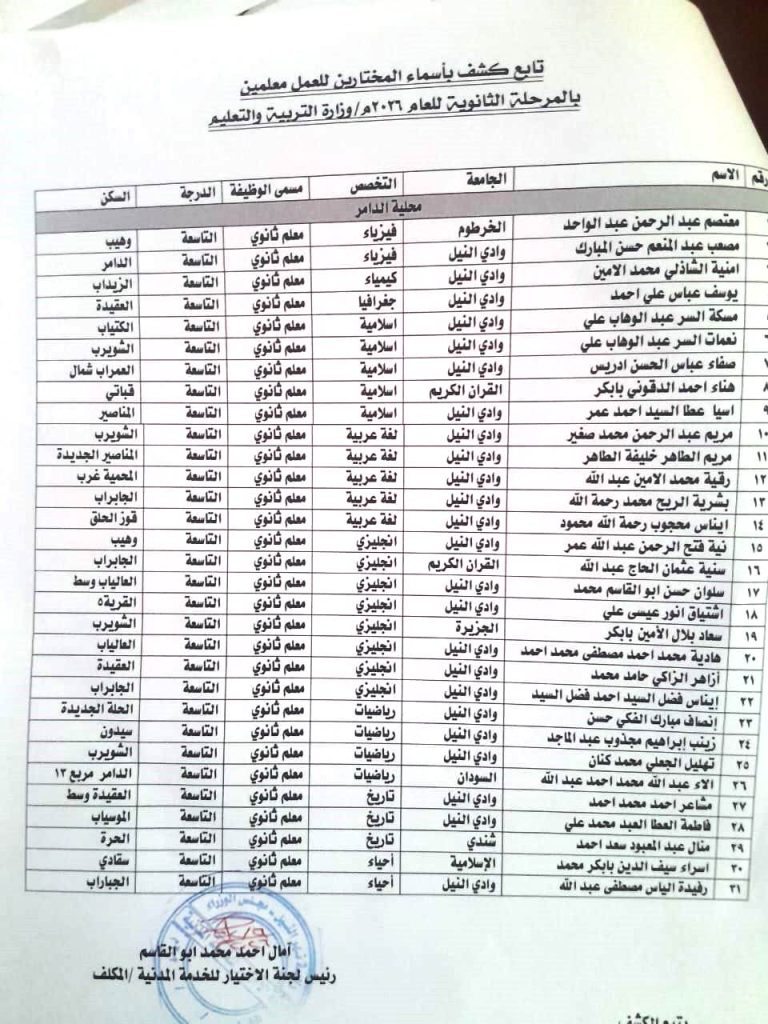 تابع كشف بأسماء المختارين للعمل معلمين
بالمرحلة الثانوية للعام ٢٠٢٦م/وزارة التربية والتعليم
رقم الاسم الجامعة التخصص مسمى الوظيفة الدرجة السكن
محلية الدامر
معتصم عبد الرحمن عبد الواحد الخرطوم فيزياء معلم ثانوي التاسعة وهيب
مصعب عبد المنعم حسن المبارك وادي النيل فيزياء معلم ثانوي التاسعة الدامر
امنية الشاذلي محمد الامين وادي النيل كيمياء معلم ثانوي التاسعة الزيداب
يوسف عباس علي احمد وادي النيل جغرافيا معلم ثانوي التاسعة العقيدة
مسكة السر عبد الوهاب علي وادي النيل اسلامية معلم ثانوي التاسعة الكتياب
نعمات السر عبد الوهاب علي وادي النيل اسلامية معلم ثانوي التاسعة الشويرب
٧ صفاء عباس الحسن ادريس وادي النيل اسلامية معلم ثانوي التاسعة العمراب شمال
٨ هناء احمد الدقوني بابكر القران الكريم اسلامية معلم ثانوي التاسعة قباتي
٩ اسيا عطا السيد احمد عمر وادي النيل اسلامية معلم ثانوي التاسعة المناصير
١٠ مريم عبد الرحمن محمد صغير وادي النيل لغة عربية معلم ثانوي التاسعة الشويرب
١١ مريم الطاهر خليفة الطاهر وادي النيل لغة عربية معلم ثانوي التاسعة المناصير الجديدة
١٢ رقية محمد الامين عبد الله وادي النيل لغة عربية معلم ثانوي التاسعة المحمية غرب
١٣ بشرية الريح محمد رحمة الله وادي النيل لغة عربية معلم ثانوي التاسعة الجابراب
١٤ ايناس محجوب رحمة الله محمود وادي النيل لغة عربية معلم ثانوي التاسعة قوز الحلق
١٥ نية فتح الرحمن عبد الله عمر وادي النيل انجليزي معلم ثانوي التاسعة وهيب
١٦ سنية عثمان الحاج عبد الله القران الكريم انجليزي معلم ثانوي التاسعة الجابراب
١٧ سلوان حسن ابو القاسم محمد وادي النيل انجليزي معلم ثانوي التاسعة العالياب وسط
١٨ اشتياق انور عيسى علي وادي النيل انجليزي معلم ثانوي التاسعة القرية٥
١٩ سعاد بلال الأمين بابكر الجزيرة انجليزي معلم ثانوي التاسعة الشويرب
٢٠ هادية محمد احمد مصطفى محمد احمد وادي النيل انجليزي معلم ثانوي التاسعة العالياب
٢١ أزاهر الزاكي حامد محمد وادي النيل انجليزي معلم ثانوي التاسعة العقيدة
٢٢ إيناس فضل السيد احمد فضل السيد وادي النيل انجليزي معلم ثانوي التاسعة الجابراب
٢٣ إنصاف مبارك الفكي حسن وادي النيل رياضيات معلم ثانوي التاسعة الحلة الجديدة
٢٤ زينب إبراهيم مجذوب عبد الماجد وادي النيل رياضيات معلم ثانوي التاسعة سيدون
٢٥ تهليل الجعلي محمد كنان وادي النيل رياضيات معلم ثانوي التاسعة الشويرب
٢٦ الاء عبد الله محمد احمد عبد الله السودان رياضيات معلم ثانوي التاسعة الدامر مربع ١٣
٢٧ مشاعر احمد محمد احمد وادي النيل تاريخ معلم ثانوي التاسعة العقيدة وسط
٢٨ فاطمة العطا العبد محمد علي وادي النيل تاريخ معلم ثانوي التاسعة الموسياب
٢٩ منال عبد المعبود سعد احمد شندي تاريخ معلم ثانوي التاسعة الحرة
٣٠ اسراء سيف الدين بابكر محمد الإسلامية أحياء معلم ثانوي التاسعة سقادي
٣١ رفيدة الياس مصطفى عبد الله وادي النيل أحياء معلم ثانوي التاسعة الجباراب
آمال احمد محمد ابو القاسم
رئيس لجنة الاختيار للخدمة المدنية /المكلف